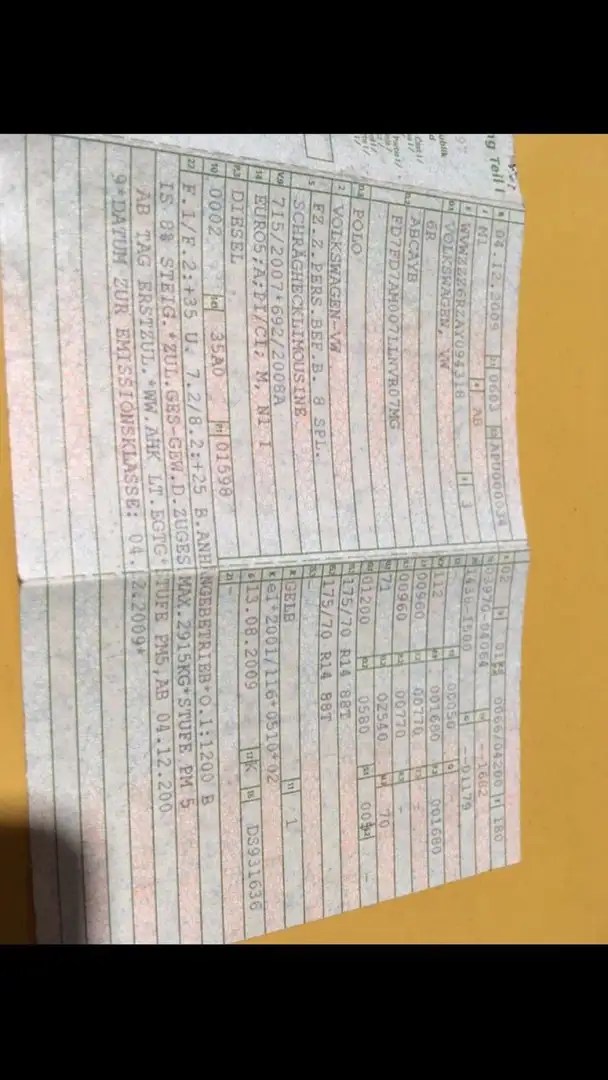 ng Teil I
B 04.12.2009 2.1 0603 2.2 APU000034
J N1 4 AB
E WVWZZZ6RZAY094318 3 3
D.1 VOLKSWAGEN, VW
6R
D.2 ABCAYB
FD7FD7AM0071LNVR07MG
D.3 POLO
2 VOLKSWAGEN-VW
5 FZ.Z.PERS.BEF.B. 8 SPL.
SCHRÄGHECKLIMOUSINE
V.9 715/2007*692/2008A
14 EURO5;A;PI/CI; M, N1 I
P.3 DIESEL
10 0002 14.1 35A0 P.1 01598
22 F.1/F.2:+35 U. 7.2/8.2:+25 B.ANHÄNGEBETRIEB*O.1:1200 B
IS 8% STEIG.*ZUL.GES-GEW.D.ZUGES MAX.2915KG*STUFE PM 5
AB TAG ERSTZUL.*WW.AHK LT.EGTG*STUFE PM5,AB 04.12.200
9*DATUM ZUR EMISSIONSKLASSE: 04.12.2009*
02 0066/04200 180
03970-04064 --1682
1430-1500 --01179
112 00050
00980 001680 001680
00960 00770 -
71 00770 -
01200 02540 70
0580 005 -
175/70 R14 88T
175/70 R14 88T
R GELB 11 1
K e1*2001/116*0510*02
6 13.08.2009 17 K 16 DS931636
21 -